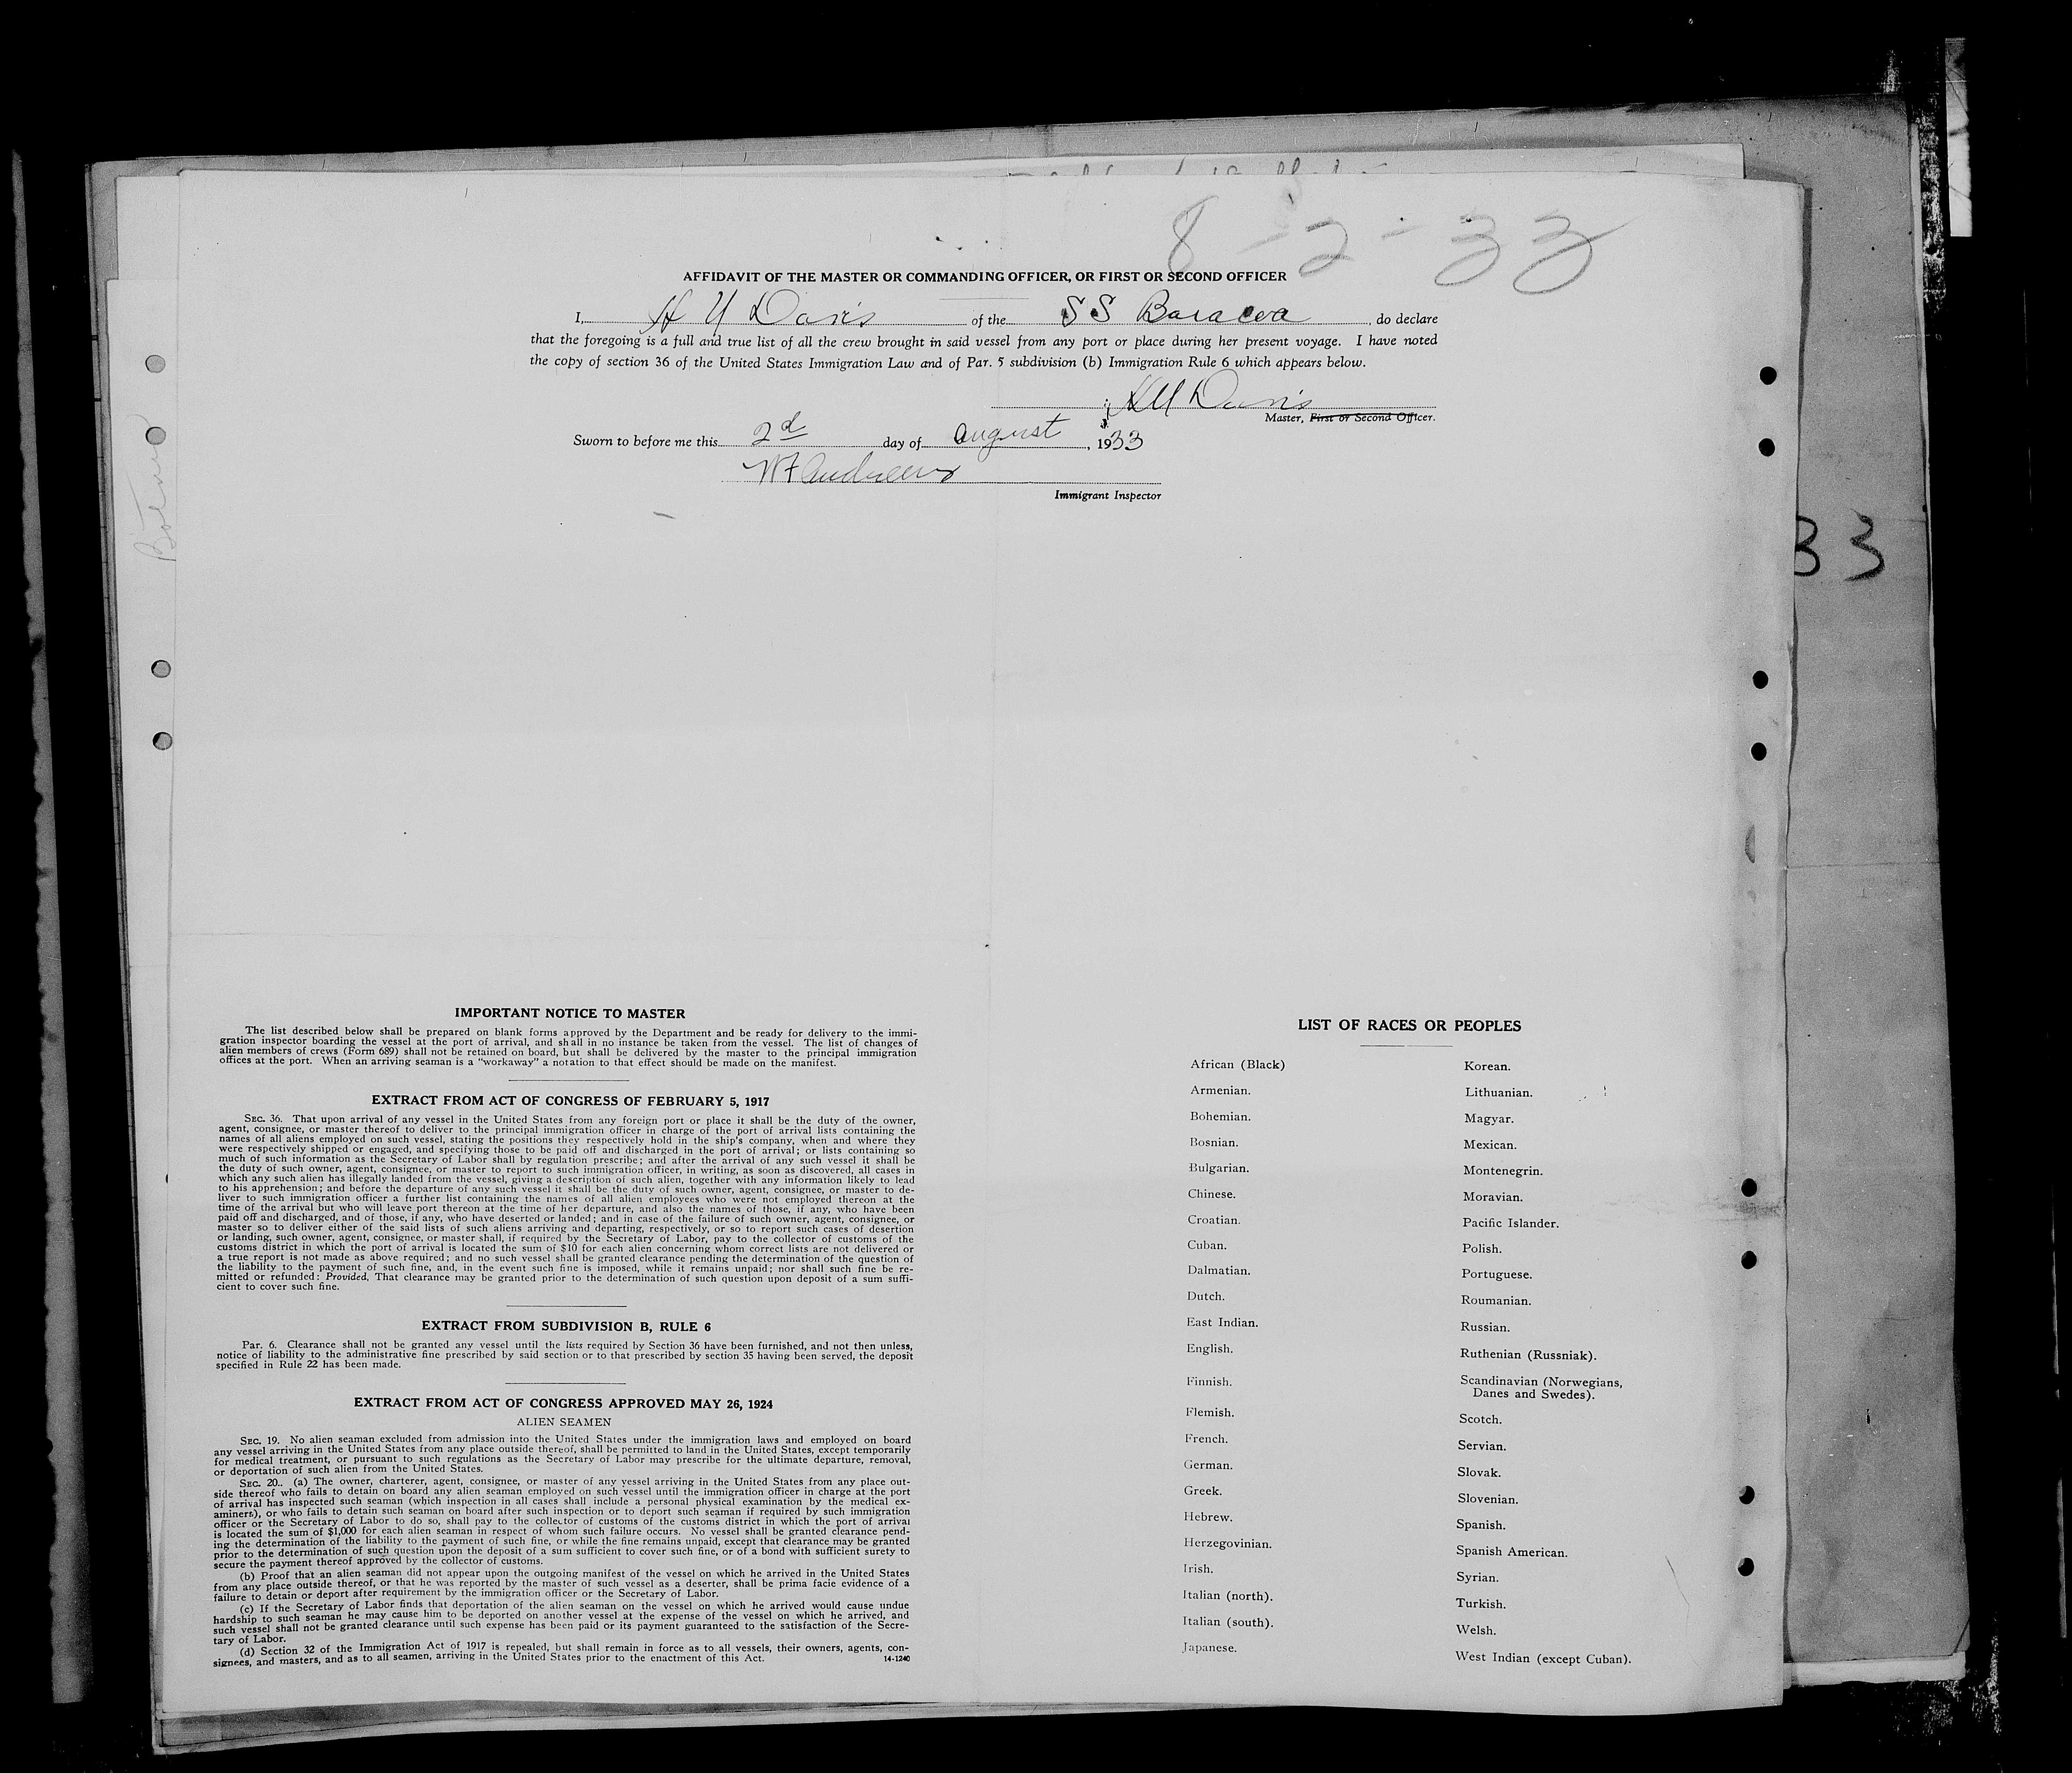 8-2-33
AFFIDAVIT OF THE MASTER OR COMMANDING OFFICER, OR FIRST OR SECOND OFFICER
I, H M Davis of the SS Baracoa, do declare
that the foregoing is a full and true list of all the crew brought in said vessel from any port or place during her present voyage. I have noted
the copy of section 36 of the United States Immigration Law and of Par. 5 subdivision (b) Immigration Rule 6 which appears below.
H M Davis
Master, First or Second Officer.
Sworn to before me this 2d day of august, 1933
W F Andrews
Immigrant Inspector
33
IMPORTANT NOTICE TO MASTER
The list described below shall be prepared on blank forms approved by the Department and be ready for delivery to the immi-
gration inspector boarding the vessel at the port of arrival, and shall in no instance be taken from the vessel. The list of changes of
alien members of crews (Form 689) shall not be retained on board, but shall be delivered by the master to the principal immigration
offices at the port. When an arriving seaman is a "workaway" a notation to that effect should be made on the manifest.
EXTRACT FROM ACT OF CONGRESS OF FEBRUARY 5, 1917
SEC. 36. That upon arrival of any vessel in the United States from any foreign port or place it shall be the duty of the owner,
agent, consignee, or master thereof to deliver to the principal immigration officer in charge of the port of arrival lists containing the
names of all aliens employed on such vessel, stating the positions they respectively hold in the ship's company, when and where they
were respectively shipped or engaged, and specifying those to be paid off and discharged in the port of arrival; or lists containing so
much of such information as the Secretary of Labor shall by regulation prescribe; and after the arrival of any such vessel it shall be
the duty of such owner, agent, consignee, or master to report to such immigration officer, in writing, as soon as discovered, all cases in
which any such alien has illegally landed from the vessel, giving a description of such alien, together with any information likely to lead
to his apprehension; and before the departure of any such vessel it shall be the duty of such owner, agent, consignee, or master to de-
liver to such immigration officer a further list containing the names of all alien employees who were not employed thereon at the
time of the arrival but who will leave port thereon at the time of her departure, and also the names of those, if any, who have been
paid off and discharged, and of those, if any, who have deserted or landed; and in case of the failure of such owner, agent, consignee, or
master so to deliver either of the said lists of such aliens arriving and departing, respectively, or so to report such cases of desertion
or landing, such owner, agent, consignee, or master shall, if required by the Secretary of Labor, pay to the collector of customs of the
customs district in which the port of arrival is located the sum of $10 for each alien concerning whom correct lists are not delivered or
a true report is not made as above required; and no such vessel shall be granted clearance pending the determination of the question of
the liability to the payment of such fine, and, in the event such fine is imposed, while it remains unpaid; nor shall such fine be re-
mitted or refunded: Provided, That clearance may be granted prior to the determination of such question upon deposit of a sum suffi-
cient to cover such fine.
EXTRACT FROM SUBDIVISION B, RULE 6
Par. 6. Clearance shall not be granted any vessel until the lists required by Section 36 have been furnished, and not then unless,
notice of liability to the administrative fine prescribed by said section or to that prescribed by section 35 having been served, the deposit
specified in Rule 22 has been made.
EXTRACT FROM ACT OF CONGRESS APPROVED MAY 26, 1924
ALIEN SEAMEN
SEC. 19. No alien seaman excluded from admission into the United States under the immigration laws and employed on board
any vessel arriving in the United States from any place outside thereof, shall be permitted to land in the United States, except temporarily
for medical treatment, or pursuant to such regulations as the Secretary of Labor may prescribe for the ultimate departure, removal,
or deportation of such alien from the United States.
SEC. 20.. (a) The owner, charterer, agent, consignee, or master of any vessel arriving in the United States from any place out-
side thereof who fails to detain on board any alien seaman employed on such vessel until the immigration officer in charge at the port
of arrival has inspected such seaman (which inspection in all cases shall include a personal physical examination by the medical ex-
aminers), or who fails to detain such seaman on board after such inspection or to deport such seaman if required by such immigration
officer or the Secretary of Labor to do so, shall pay to the collector of customs of the customs district in which the port of arrival
is located the sum of $1,000 for each alien seaman in respect of whom such failure occurs. No vessel shall be granted clearance pend-
ing the determination of the liability to the payment of such fine, or while the fine remains unpaid, except that clearance may be granted
prior to the determination of such question upon the deposit of a sum sufficient to cover such fine, or of a bond with sufficient surety to
secure the payment thereof approved by the collector of customs.
(b) Proof that an alien seaman did not appear upon the outgoing manifest of the vessel on which he arrived in the United States
from any place outside thereof, or that he was reported by the master of such vessel as a deserter, shall be prima facie evidence of a
failure to detain or deport after requirement by the immigration officer or the Secretary of Labor.
(c) If the Secretary of Labor finds that deportation of the alien seaman on the vessel on which he arrived would cause undue
hardship to such seaman he may cause him to be deported on another vessel at the expense of the vessel on which he arrived, and
such vessel shall not be granted clearance until such expense has been paid or its payment guaranteed to the satisfaction of the Secre-
tary of Labor.
(d) Section 32 of the Immigration Act of 1917 is repealed, but shall remain in force as to all vessels, their owners, agents, con-
signees, and masters, and as to all seamen, arriving in the United States prior to the enactment of this Act. 14-1240
LIST OF RACES OR PEOPLES
African (Black)
Armenian.
Bohemian.
Bosnian.
Bulgarian.
Chinese.
Croatian.
Cuban.
Dalmatian.
Dutch.
East Indian.
English.
Finnish.
Flemish.
French.
German.
Greek.
Hebrew.
Herzegovinian.
Irish.
Italian (north).
Italian (south).
Japanese.
Korean.
Lithuanian.
Magyar.
Mexican.
Montenegrin.
Moravian.
Pacific Islander.
Polish.
Portuguese.
Roumanian.
Russian.
Ruthenian (Russniak).
Scandinavian (Norwegians,
Danes and Swedes).
Scotch.
Servian.
Slovak.
Slovenian.
Spanish.
Spanish American.
Syrian.
Turkish.
Welsh.
West Indian (except Cuban).